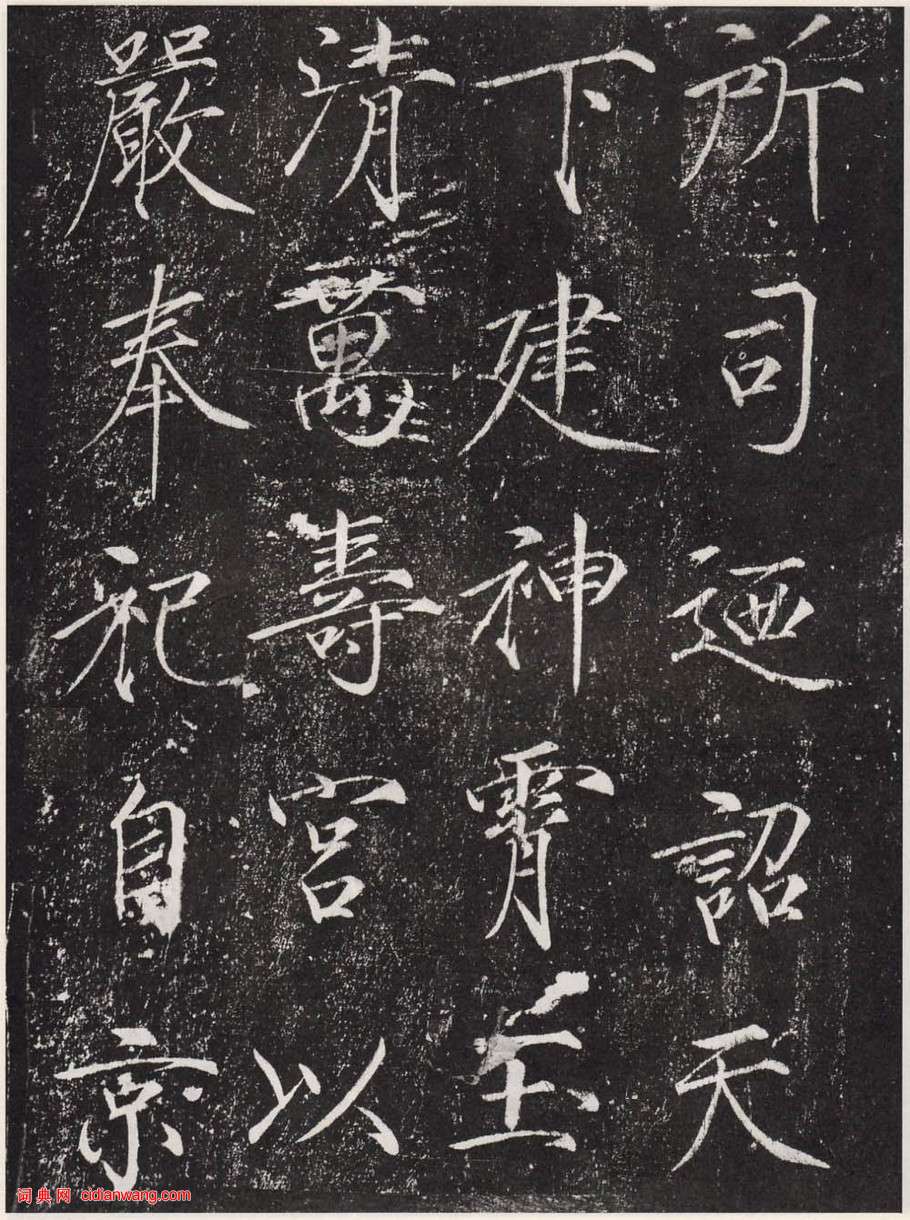 所司迺詔天
下建神霄玉
清萬壽宮以
嚴奉祀自京
词典网 cidianwang.com